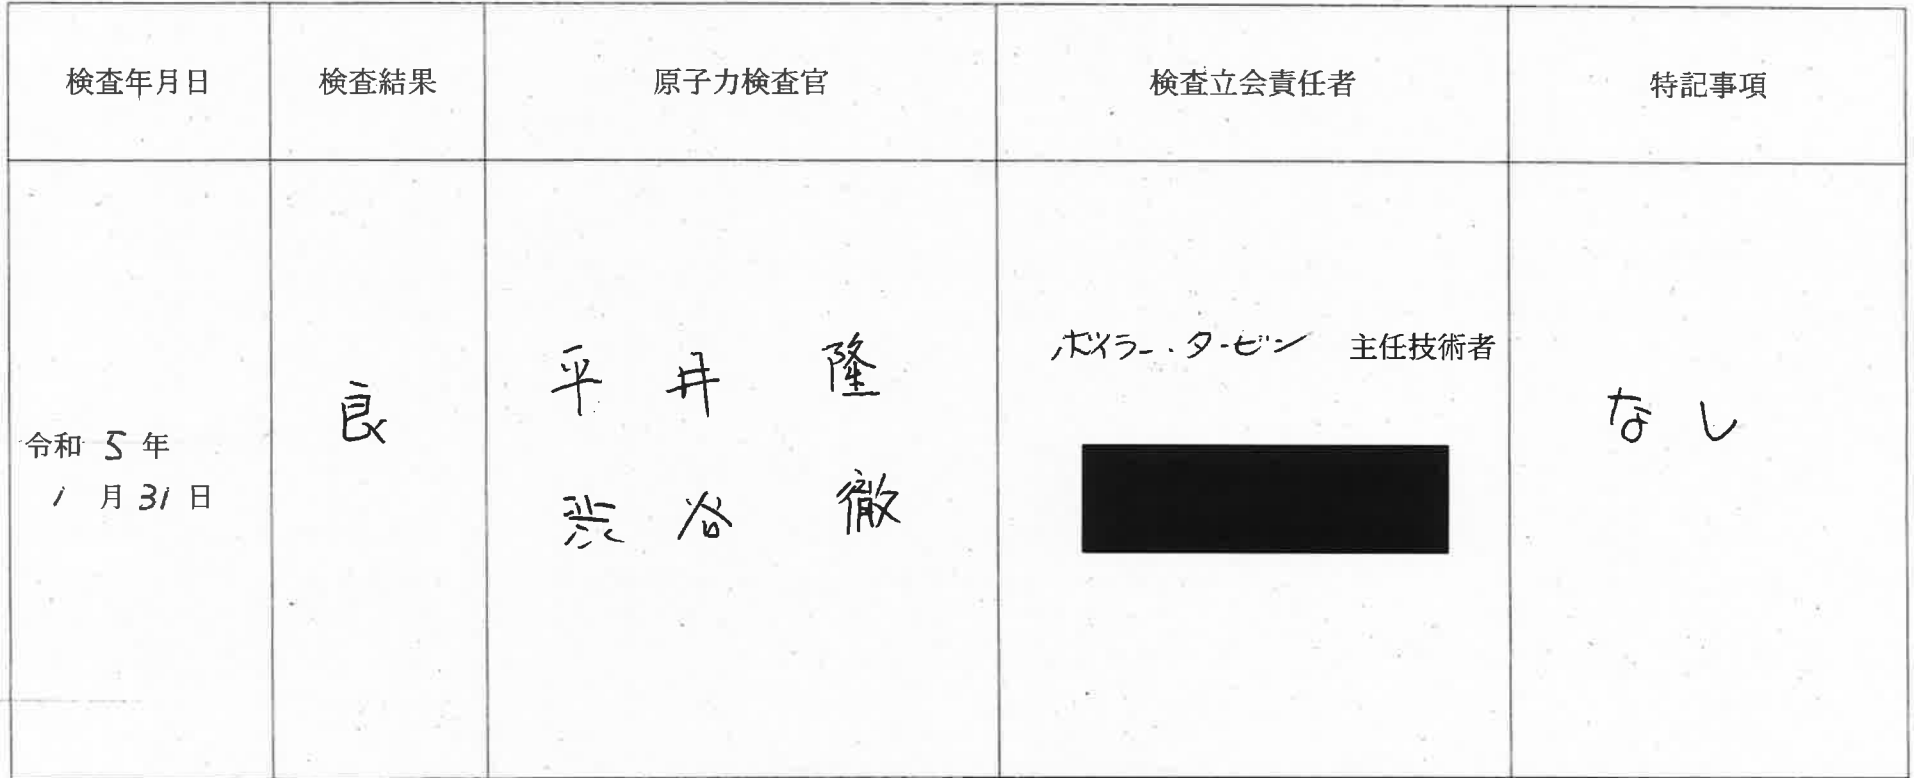 検査年月日
検査結果
原子力検査官
検査立会責任者
特記事項
令和 5 年
1 月 31 日
良
平井 隆
渋谷 徹
ボイラー・タービン 主任技術者
なし